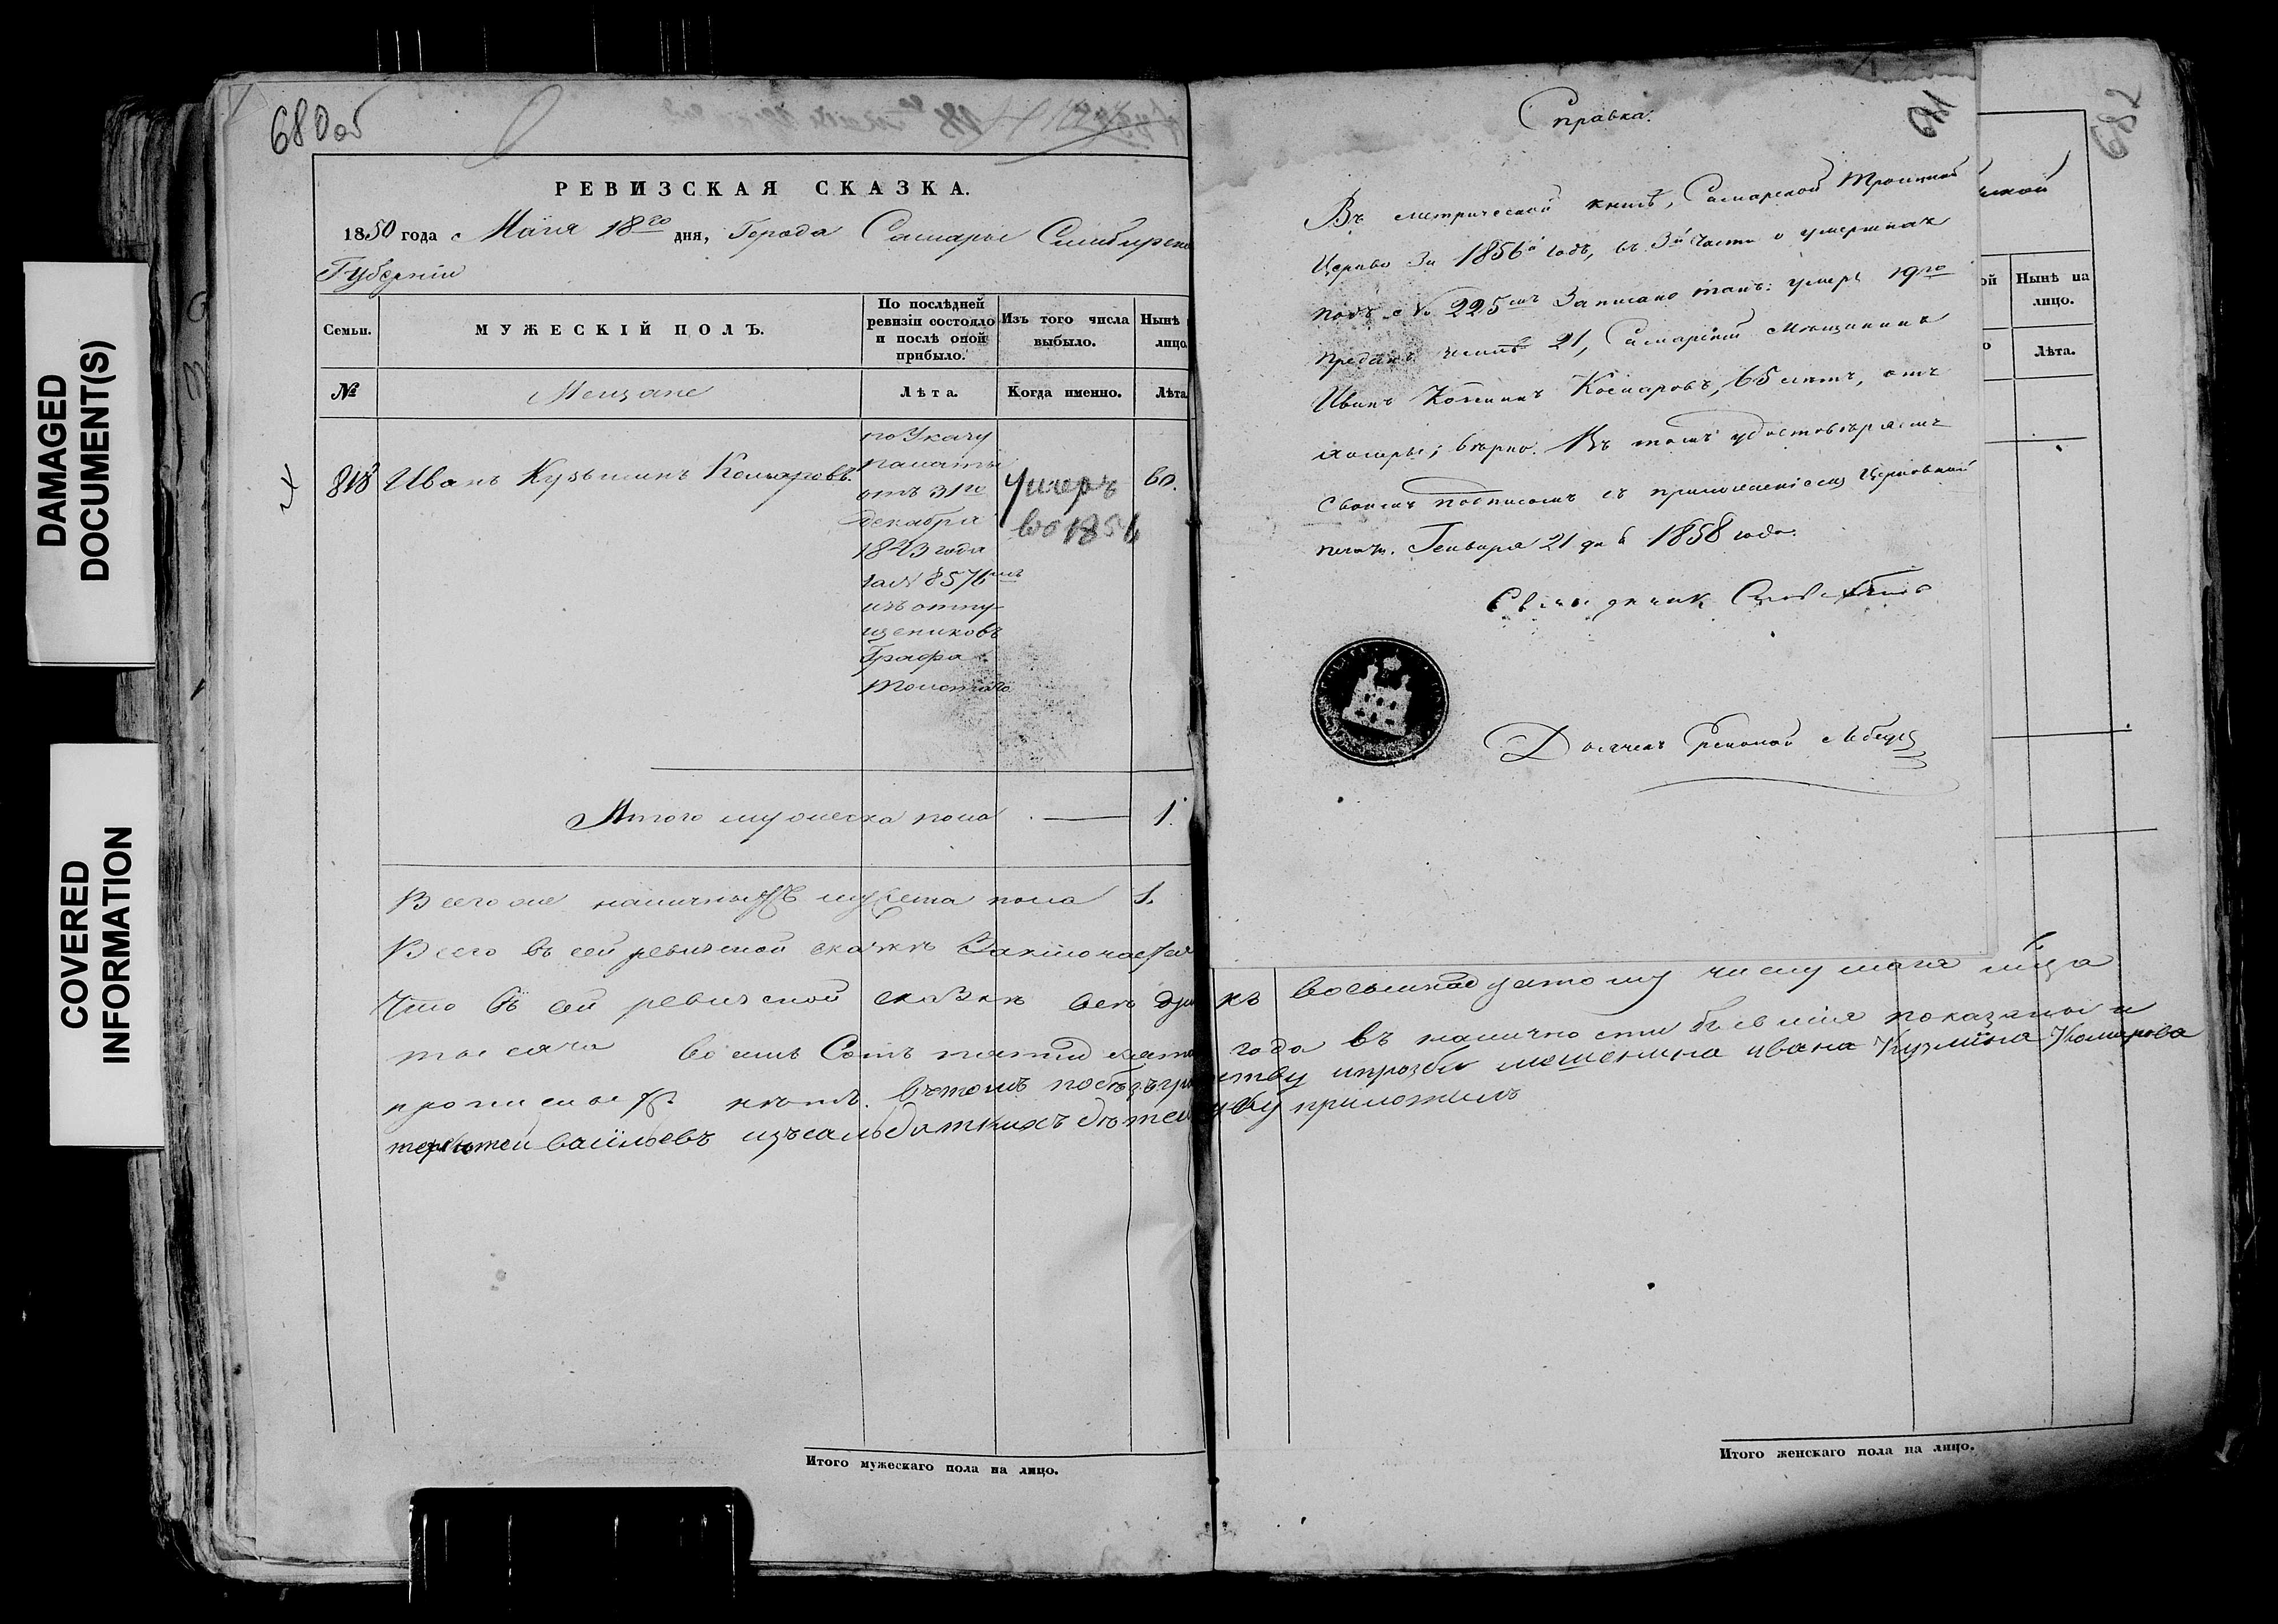 DAMAGED
DOCUMENT(S)
COVERED
INFORMATION
680об
РЕВИЗСКАЯ СКАЗКА.
1850 года Маiя 18го дня, Города Самары Симбирско
Губернiи
Семьи.
МУЖЕСКIЙ ПОЛЪ.
По послѣдней
ревизiи состояло
и послѣ оной
прибыло.
Изъ того числа
выбыло.
Нынѣ
лицо
№
Мещане
Лѣта.
Когда именно.
Лѣта
818
Иванъ Кузьминъ Комаровъ.
по Указу
палаты
отъ 31го
декабря
1843 года
за № 8576мъ
изъ отпу-
щениковъ
Графа
Толстаго
Умеръ
въ 1856
60.
Итого мужеска пола 1.
Всего же наличныхъ мужеска пола 1.
Всего въ сей ревизской сказкѣ Заключается
Что въ сей ревизской сказкѣ всѣ души къ восьмнадцатому числу маiя
тысяча восемь Сотъ пятид года въ наличности бывшiя показаны и
прописныхъ нѣтъ. вътомъ побезъграмотству ипрозбѣ мешенина ивана Кузмiна Комарова
терентей васiльевъ изъсальдатскихъ дѣтей руку приложилъ
Итого мужескаго пола на лицо.
Справка.
681
Въ метрической книгѣ, Самарской Троицкой
Церкви За 1856й годъ, въ 3й части о умершихъ
подъ № 225мъ Записано такъ: умеръ 19го
преданъ землѣ 21, Самарскiй мѣщанинъ
Иванъ Козминъ Комаровъ, 65 лѣтъ, отъ
холеры; вѣрно. Въ томъ удостовѣряемъ
своимъ подписомъ съ приложенiемъ Церковной
печати. Генваря 21 дня 1858 года.
Священникъ
682
ской
ой
Нынѣ на
лицо.
о
Лѣта.
Итого женскаго пола на лицо.